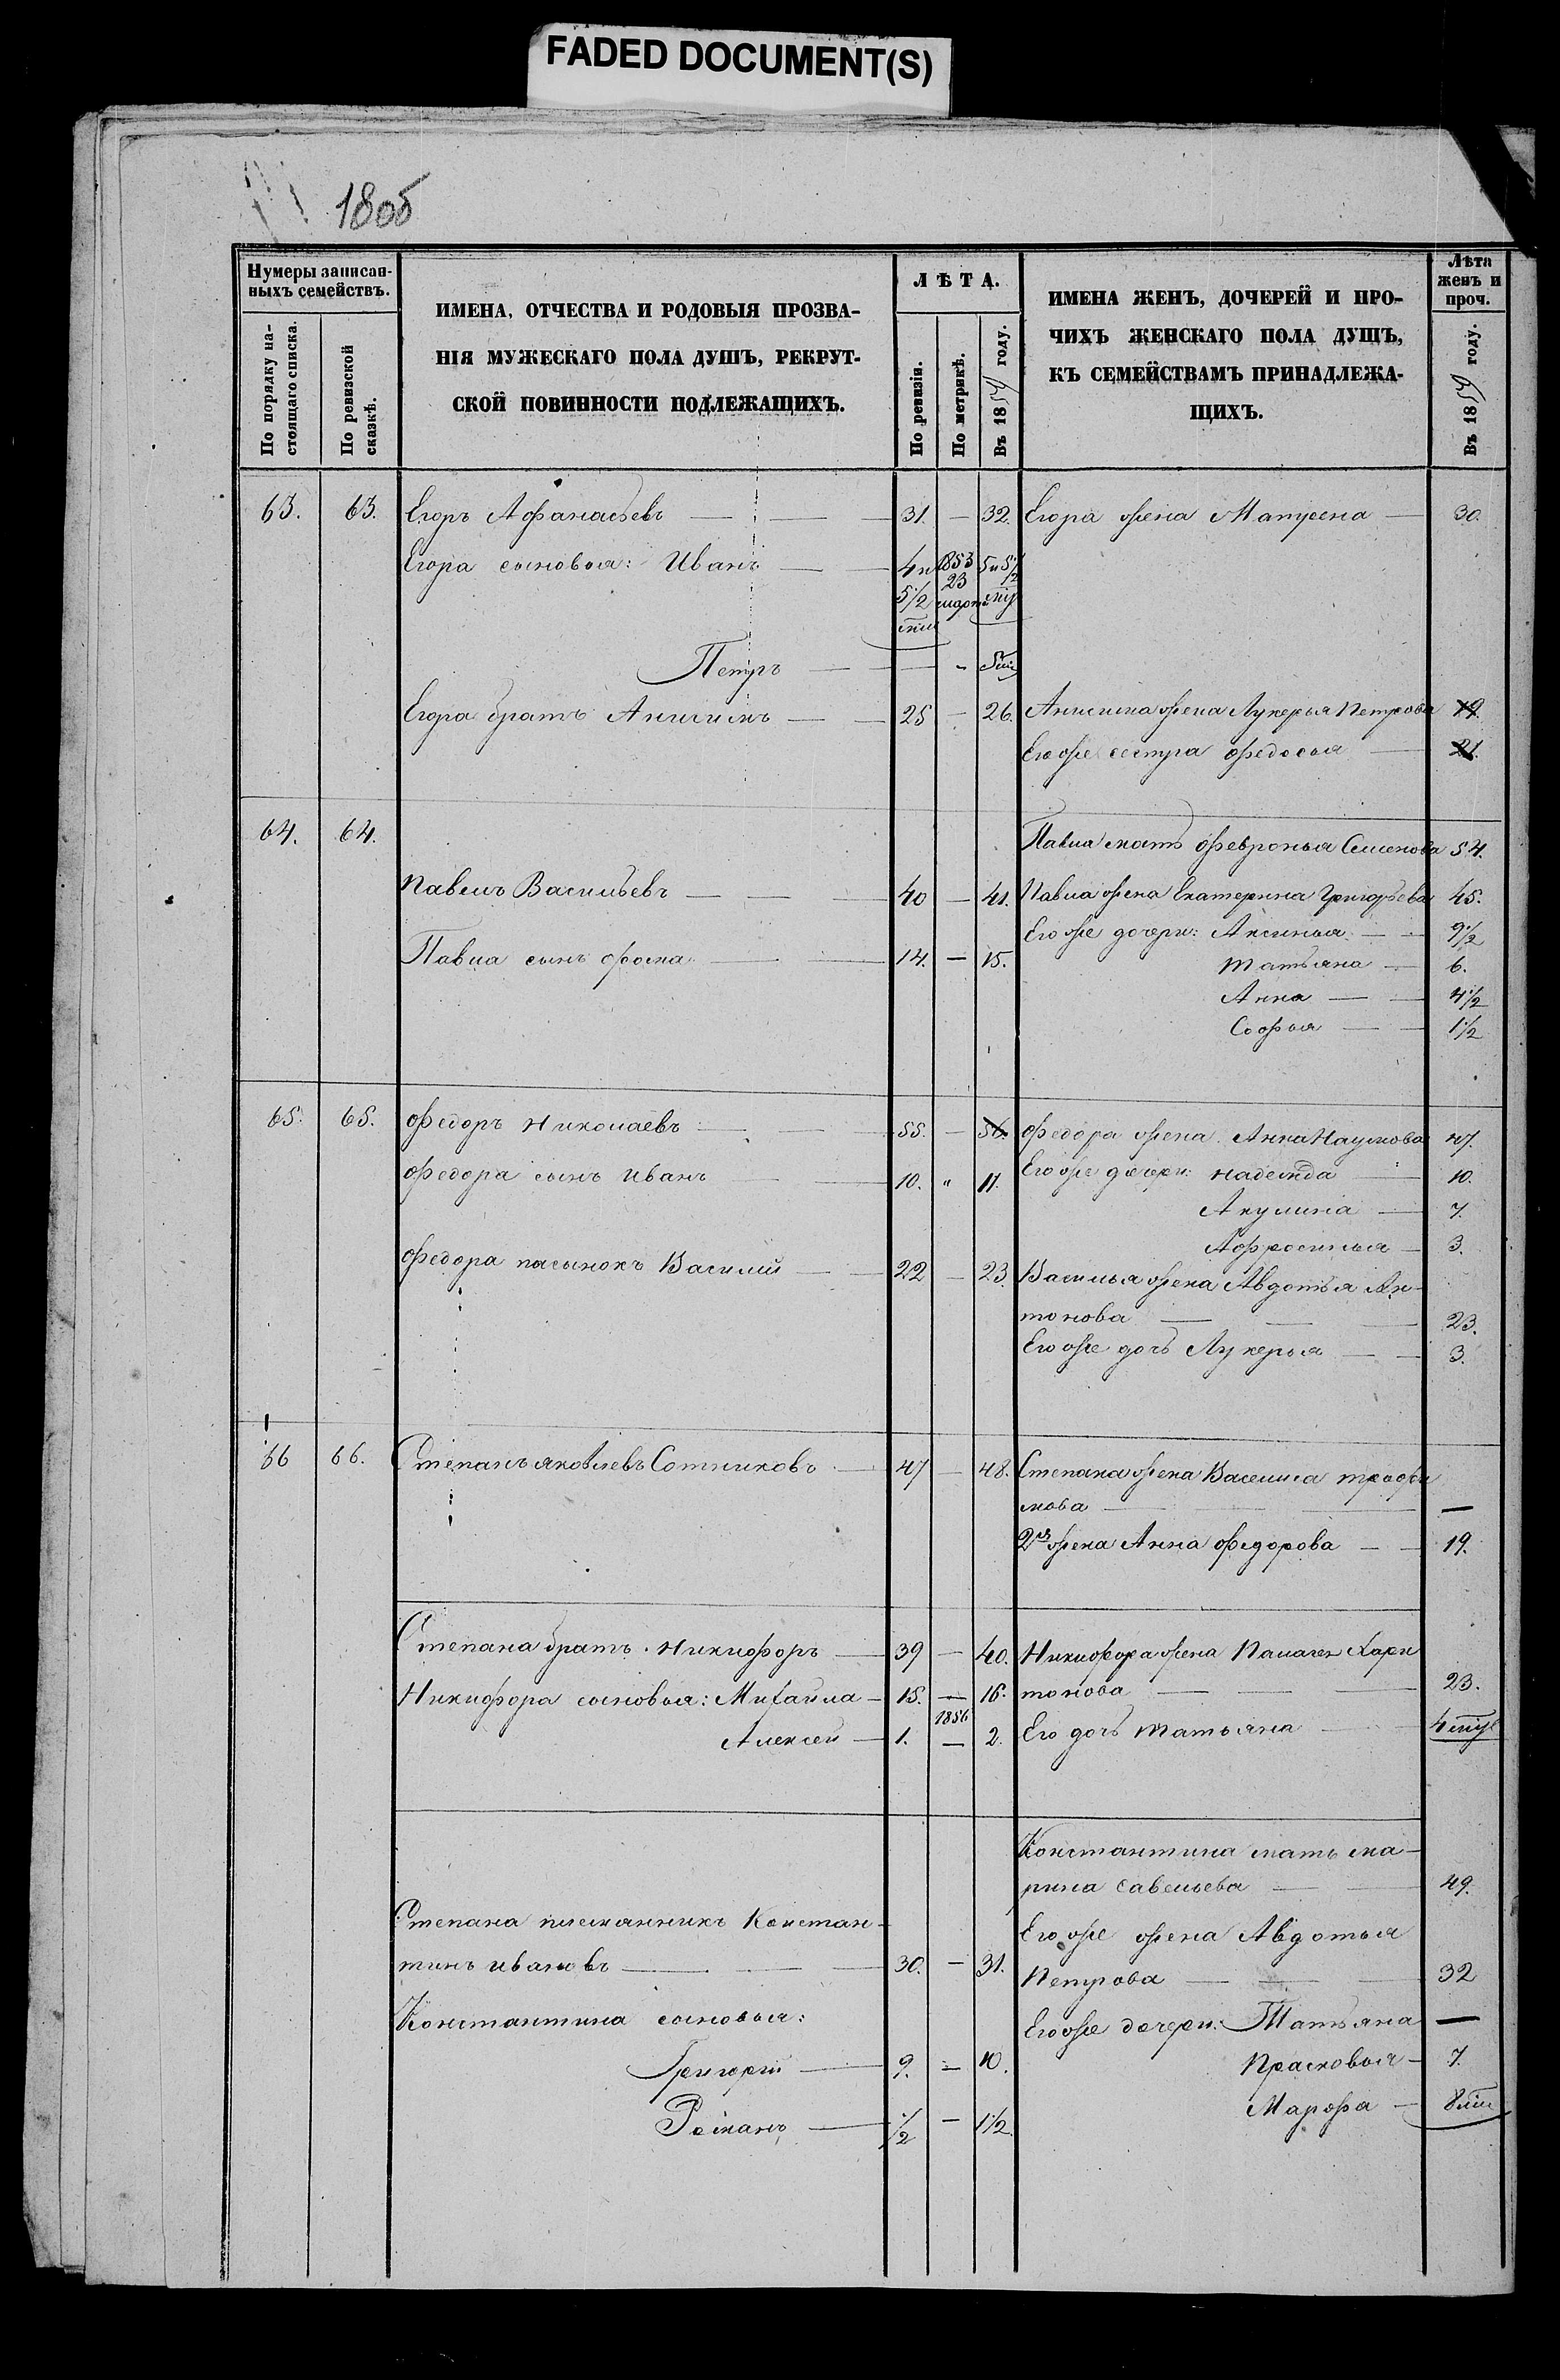 FADED DOCUMENT(S)
1805
Нумеры записан-
ныхъ семействъ.
По порядку на-
стоящаго списка.
По ревизской
сказкѣ.
ИМЕНА, ОТЧЕСТВА И РОДОВЫЯ ПРОЗВА-
НІЯ МУЖЕСКАГО ПОЛА ДУШЪ, РЕКРУТ-
СКОЙ ПОВИННОСТИ ПОДЛЕЖАЩИХЪ.
ЛѢТА.
По ревизіи.
По метрикѣ.
Въ 1859 году.
ИМЕНА ЖЕНЪ, ДОЧЕРЕЙ И ПРО-
ЧИХЪ ЖЕНСКАГО ПОЛА ДУШЪ,
КЪ СЕМЕЙСТВАМЪ ПРИНАДЛЕЖА-
ЩИХЪ.
Лѣта
женъ и
проч.
Въ 1859 году.
63. 63. Егоръ Афанасьевъ — 31. — 32. Егора жена Матрена — 30.
Егора сыновья: Иванъ — 4 и 5½ 1853 23 марта 5 и 5½
Петръ — — - 5
Егора братъ Анисимъ — 25 — 26. Анисима жена Лукерья Петрова 19.
Его же сестра Федосья — 21.
64. 64. Павла мать Февронья Семенова 54.
Павелъ Васильевъ — 40 — 41. Павла жена Екатерина Григорьева 45.
Его же дочери: Аксинья — 9½
Павла сынъ Фома — 14. — 15. Татьяна — 6.
Анна — 4½
Софья — 1½
65. 65. Федоръ Николаевъ — 55. — 56. Федора жена Анна Наумова 47.
Федора сынъ Иванъ — 10. " 11. Его же дочери: Надежда — 10.
Акулина — 7.
Афросинья — 3.
Федора пасынокъ Василій — 22 — 23. Василья жена Авдотья Ан-
тонова — 23.
Его же дочь Лукерья — 3.
66 66. Степанъ Яковлевъ Сотниковъ — 47 — 48. Степана жена Василиса Трофи
мова — —
2я жена Анна Федорова — 19.
Степана братъ Никифоръ — 39 — 40. Никифора жена Палагея Хари
Никифора сыновья: Михайла — 15. — 16. тонова — 23.
Алексей — 1. 1856 — 2. Его дочь Татьяна — 4
Константина мать Ма-
рина Савельева — 49.
Степана племянникъ Констан-
Его же жена Авдотья
тинъ Ивановъ — 30. — 31. Петрова — 32
Константина сыновья: Его же дочери: Татьяна —
Григорій — 9. — 10. Прасковья — 7.
Романъ — ½ — 1½. Марфа — 8